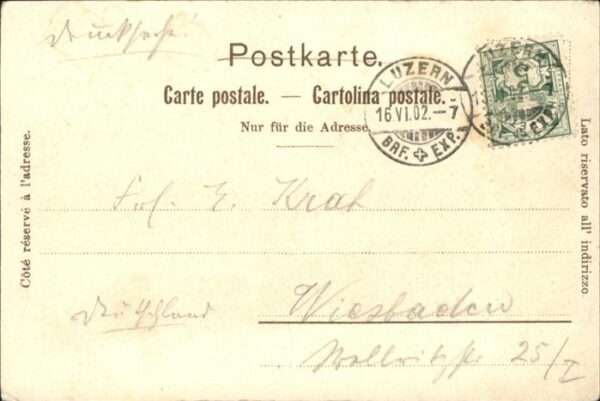 Drucksache!
Postkarte.
Carte postale. — Cartolina postale.
Nur für die Adresse.
LUZERN
16.VI.02.–7
BRF. EXP.
LUZERN
EXP.
Côté réservé à l'adresse.
Lato riservato all' indirizzo
Frl. E. Krah
Wiesbaden
Deutschland
25/I